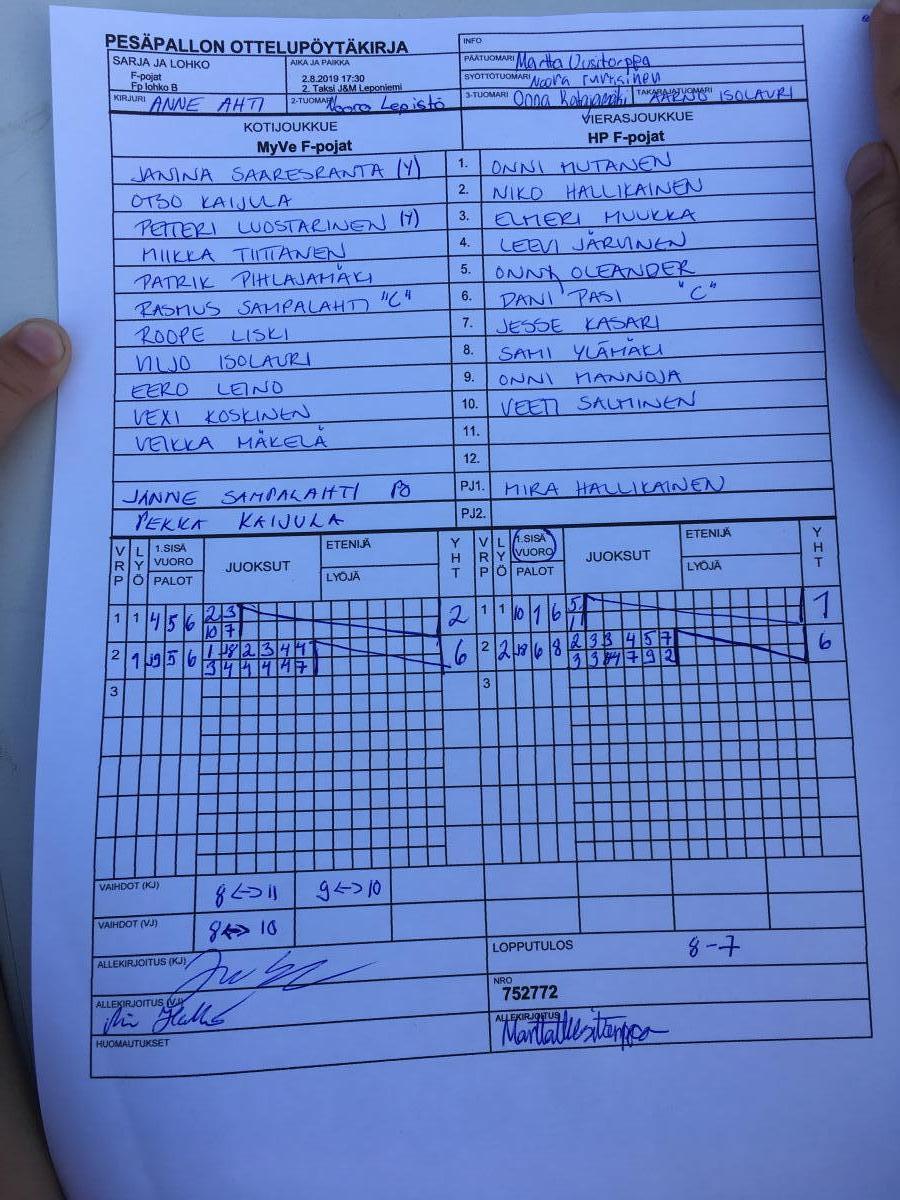 PESÄPALLON OTTELUPÖYTÄKIRJA
INFO
SARJA JA LOHKO
F-pojat
Fp lohko B
AIKA JA PAIKKA
2.8.2019 17:30
2. Taksi J&M Leponiemi
PÄÄTUOMARI Martta Uusitorppa
SYÖTTÖTUOMARI Noora
KIRJURI ANNE AHTI
2-TUOMARI Noora Lepistö
3-TUOMARI Onna Katajamäki
TAKARAJATUOMARI AARNO ISOLAURI
KOTIJOUKKUE
MyVe F-pojat
VIERASJOUKKUE
HP F-pojat
JANINA SAARESRANTA (Y) 1. ONNI MUTANEN
OTSO KAIJULA 2. NIKO HALLIKAINEN
PETTERI LUOSTARINEN (Y) 3. ELMERI MUUKKA
MIIKKA TIITTANEN 4. LEEVI JÄRVINEN
PATRIK PIHLAJAMÄKI 5. OLEANDER
RASMUS SAMPALAHTI "C" 6. DANI PASI "C"
ROOPE LISKI 7. JESSE KASARI
VILJO ISOLAURI 8. SAMI YLÄMÄKI
EERO LEINO 9. ONNI MANNOJA
VEXI KOSKINEN 10. VEETI SALMINEN
VEIKKA MÄKELÄ 11.
12.
JANNE SAMPALAHTI PJ1. MIRA HALLIKAINEN
PEKKA KAIJULA PJ2.
VRP LYÖ 1.SISÄ VUORO PALOT JUOKSUT ETENIJÄ LYÖJÄ YHT VRP LYÖ 1.SISÄ VUORO PALOT JUOKSUT ETENIJÄ LYÖJÄ YHT
1 1 4 5 6 2 3 2 1 1 10 1 6 5 1
10 7 1
2 1 5 6 1 2 3 4 4 6 2 2 6 8 2 3 3 4 5 7 6
3 4 4 4 4 7 3 3 7 9 2
3 3
VAIHDOT (KJ) 8 <-> 11 9 <-> 10
VAIHDOT (VJ) 8 <-> 10
ALLEKIRJOITUS (KJ)
LOPPUTULOS 8-7
ALLEKIRJOITUS (VJ)
NRO
752772
HUOMAUTUKSET
ALLEKIRJOITUS Martta Uusitorppa